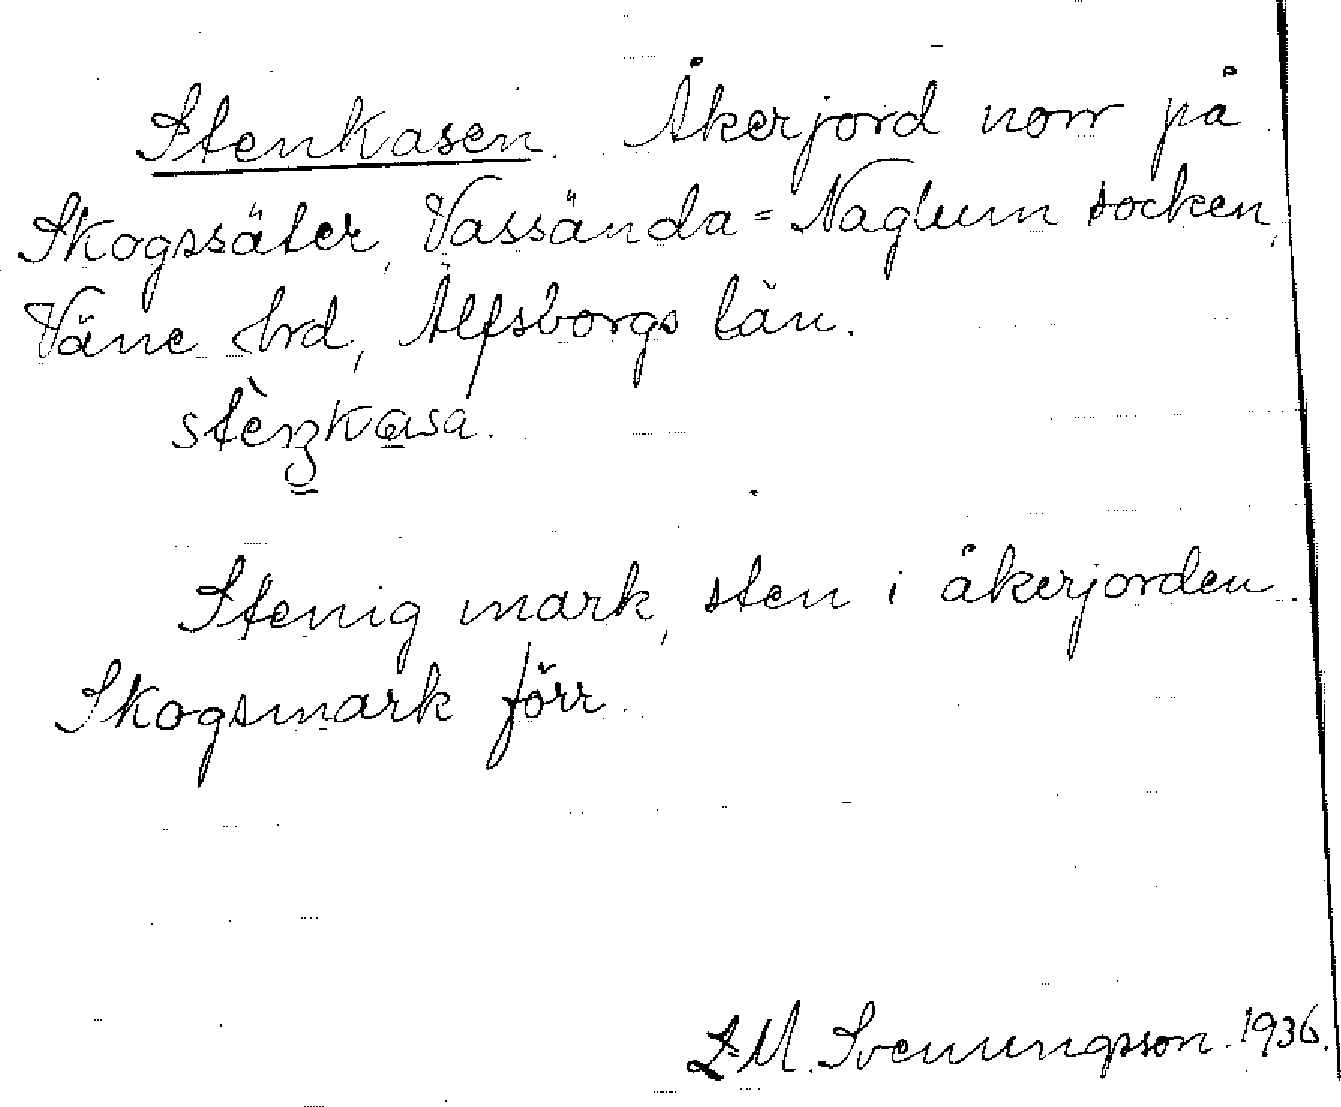 Stenkasen. Åkerjord norr på
Skogssäter, Vassända-Naglum socken,
Väne hrd, Älfsborgs län.
Stenig mark, sten i åkerjorden.
Skogsmark förr.
L. M. Svenungsson. 1936.